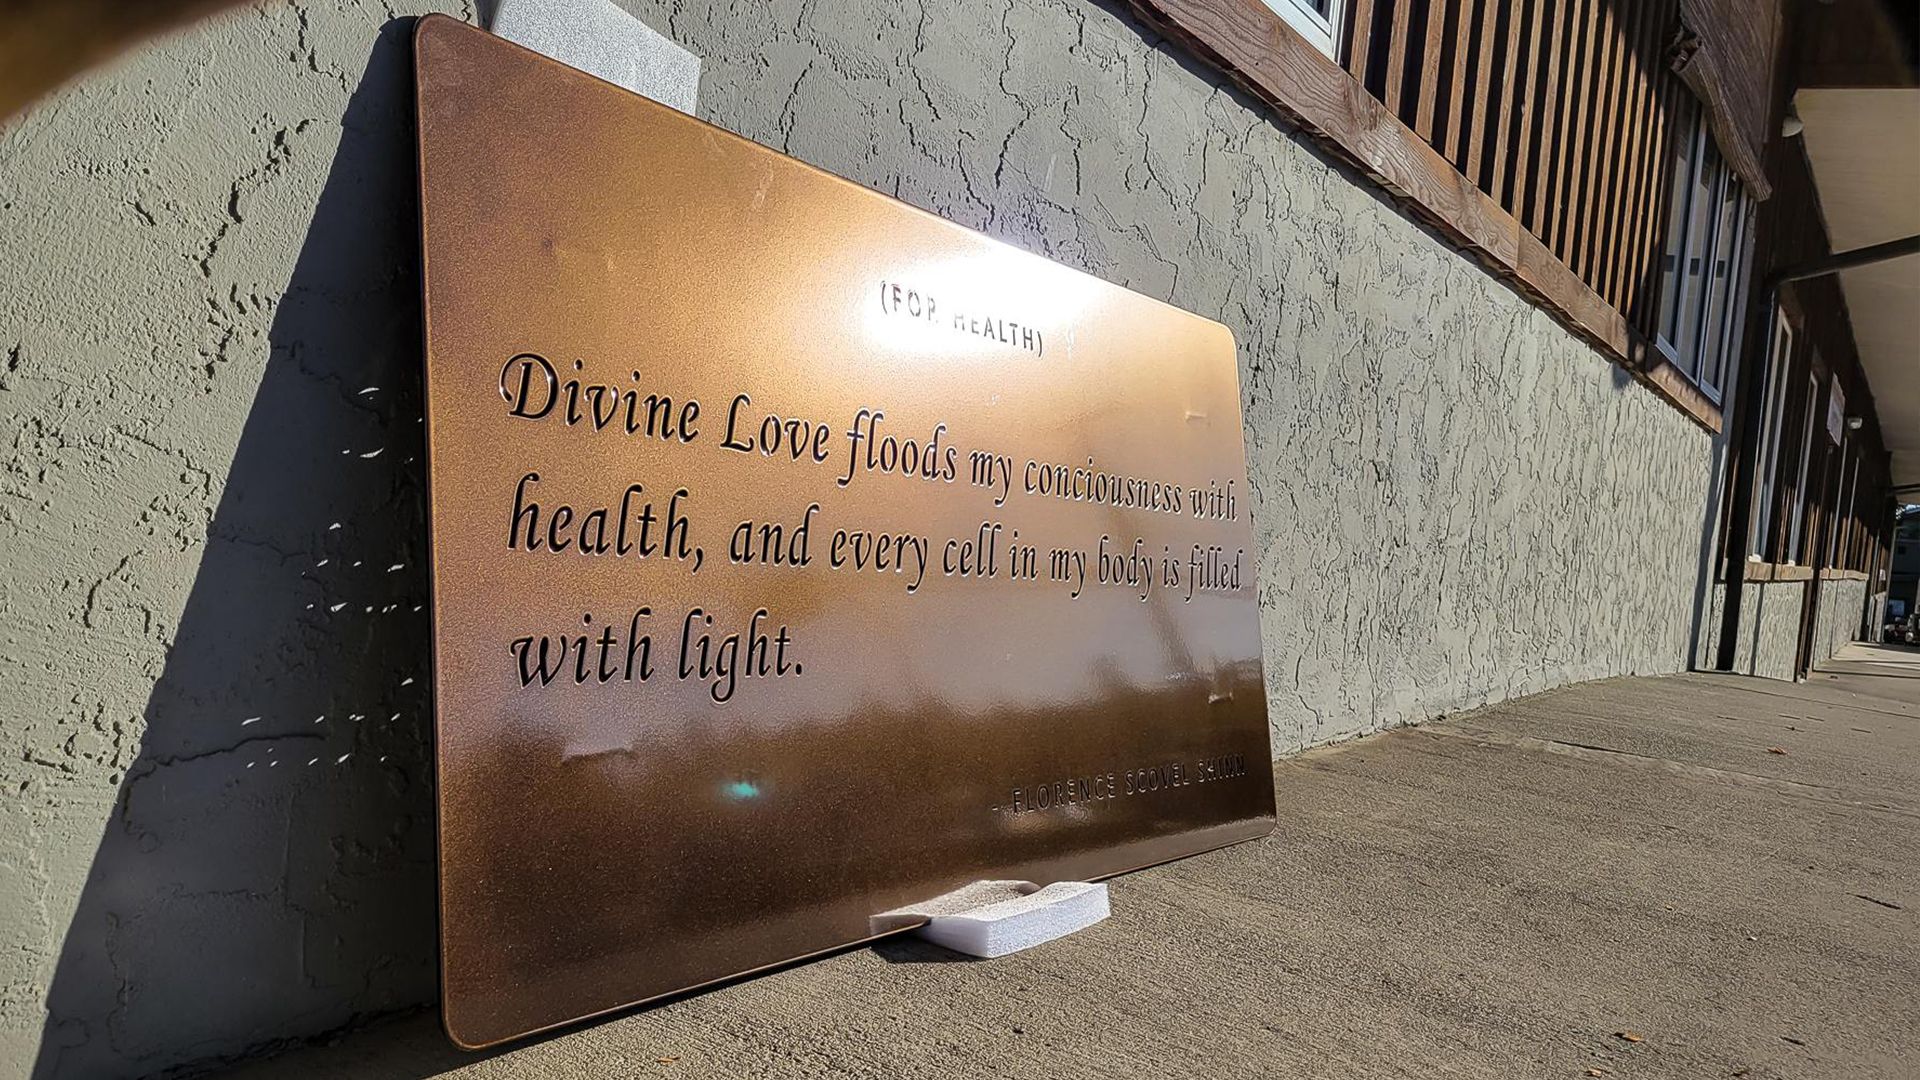 (FOR HEALTH)
Divine Love floods my conciousness with
health, and every cell in my body is filled
with light.
- FLORENCE SCOVEL SHINN